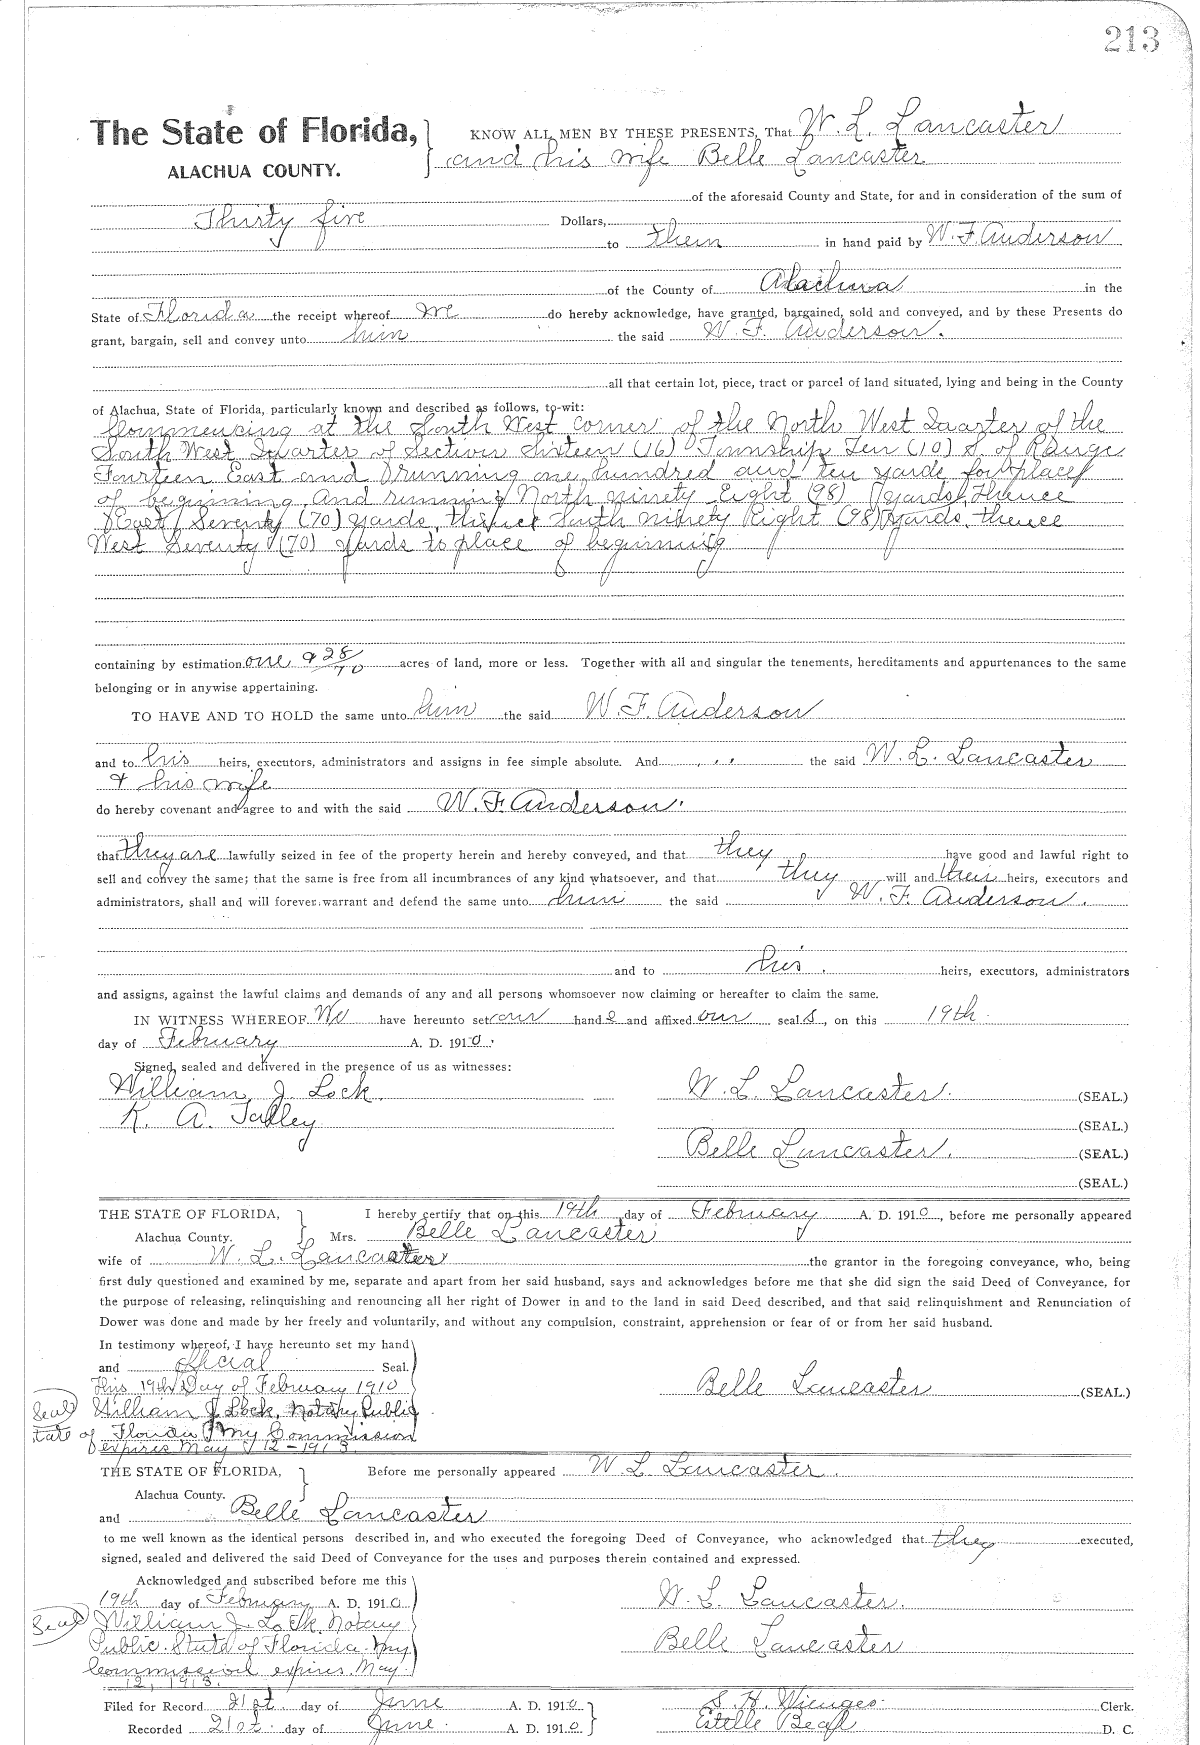 213
The State of Florida,
ALACHUA COUNTY.
KNOW ALL MEN BY THESE PRESENTS, That W. L. Lancaster
and his wife Belle Lancaster
of the aforesaid County and State, for and in consideration of the sum of
Thirty five Dollars,
to them in hand paid by W. F. Anderson
of the County of Alachua in the
State of Florida the receipt whereof we do hereby acknowledge, have granted, bargained, sold and conveyed, and by these Presents do
grant, bargain, sell and convey unto him the said W. F. Anderson.
all that certain lot, piece, tract or parcel of land situated, lying and being in the County
of Alachua, State of Florida, particularly known and described as follows, to-wit:
Commencing at the South West Corner of the North West Quarter of the
South West Quarter of Section Sixteen (16) Township Ten (10) S. of Range
Fourteen East and running one hundred and ten yards for place
of beginning and running North ninety Eight (98) yards, thence
East Seventy (70) yards, thence South ninety Eight (98) yards thence
West Seventy (70) yards to place of beginning
containing by estimation one & 28/70 acres of land, more or less. Together with all and singular the tenements, hereditaments and appurtenances to the same
belonging or in anywise appertaining.
TO HAVE AND TO HOLD the same unto him the said W. F. Anderson
and to his heirs, executors, administrators and assigns in fee simple absolute. And the said W. L. Lancaster
& his wife
do hereby covenant and agree to and with the said W. F. Anderson.
that they are lawfully seized in fee of the property herein and hereby conveyed, and that they have good and lawful right to
sell and convey the same; that the same is free from all incumbrances of any kind whatsoever, and that they will and their heirs, executors and
administrators, shall and will forever warrant and defend the same unto him the said W. F. Anderson.
and to his. heirs, executors, administrators
and assigns, against the lawful claims and demands of any and all persons whomsoever now claiming or hereafter to claim the same.
IN WITNESS WHEREOF We have hereunto set our hands and affixed our seals, on this 19th
day of February A. D. 1910.
Signed, sealed and delivered in the presence of us as witnesses:
William J. Lock. W. L. Lancaster. (SEAL.)
K. A. Talley (SEAL.)
Belle Lancaster. (SEAL.)
(SEAL.)
THE STATE OF FLORIDA, I hereby certify that on this 19th day of February A. D. 1910, before me personally appeared
Alachua County. Mrs. Belle Lancaster
wife of W. L. Lancaster the grantor in the foregoing conveyance, who, being
first duly questioned and examined by me, separate and apart from her said husband, says and acknowledges before me that she did sign the said Deed of Conveyance, for
the purpose of releasing, relinquishing and renouncing all her right of Dower in and to the land in said Deed described, and that said relinquishment and Renunciation of
Dower was done and made by her freely and voluntarily, and without any compulsion, constraint, apprehension or fear of or from her said husband.
In testimony whereof, I have hereunto set my hand
and official Seal.
This 19th Day of February 1910 Belle Lancaster (SEAL.)
Seal William J. Lock, Notary Public
State of Florida My Commission
expires May 12-1913
THE STATE OF FLORIDA, Before me personally appeared W L Lancaster.
Alachua County.
and Belle Lancaster
to me well known as the identical persons described in, and who executed the foregoing Deed of Conveyance, who acknowledged that they executed,
signed, sealed and delivered the said Deed of Conveyance for the uses and purposes therein contained and expressed.
Acknowledged and subscribed before me this
19th day of February A. D. 1910 W. L. Lancaster.
Seal William J. Lock Notary
Public State of Florida. My Belle Lancaster
Commission expires May
12, 1913.
Filed for Record 21st. day of June A. D. 1910 S. H. Wienges. Clerk.
Recorded 21st. day of June. A. D. 1910. Estelle D. C.